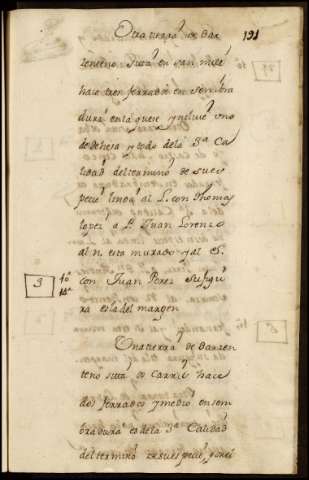 Otra tierra de Bar
191
benteno situa en san migl
hace tres ferrados en sembra
dura en la que se yncluie uno
de dehesa y todo de la 3ª Ca
lidad del termino de su es
pecie linda al L. con Thomas
lopez a P. Juan Lorenzo
al N. esta murado y al S.
con Juan Perez su figu
ra es la del margen
3
Una tierra de Barven
teno situa os Carris hace
dos ferrados y medio en sem
bradura es de la 3ª Calidad
del termino de su especie